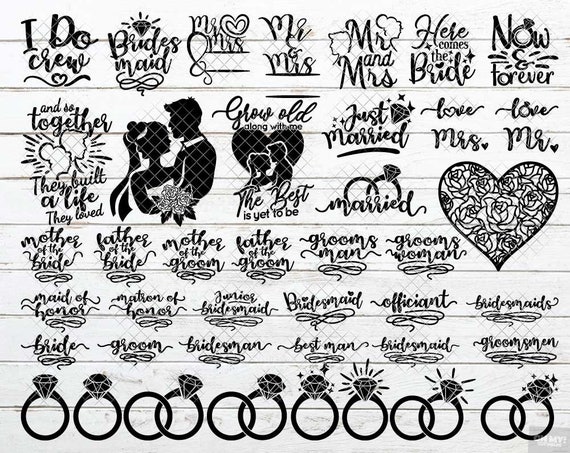 I Do
crew
Brides
maid
Mr
Mrs
Mr
&
Mrs
Mr
and
Mrs
Here
comes
the
Bride
Now
&
Forever
and so
together
They built
a life
They loved
Grow old
along with me
The Best
is yet to be
Just
Married
love
Mrs.
love
Mr.
married
mother
of the
bride
father
of the
bride
mother
of the
groom
father
of the
groom
grooms
man
grooms
woman
maid of
honor
matron of
honor
Junior
bridesmaid
Bridesmaid
officiant
bridesmaids
bride
groom
bridesman
best man
bridesmaid
groomsmen
OH MY!